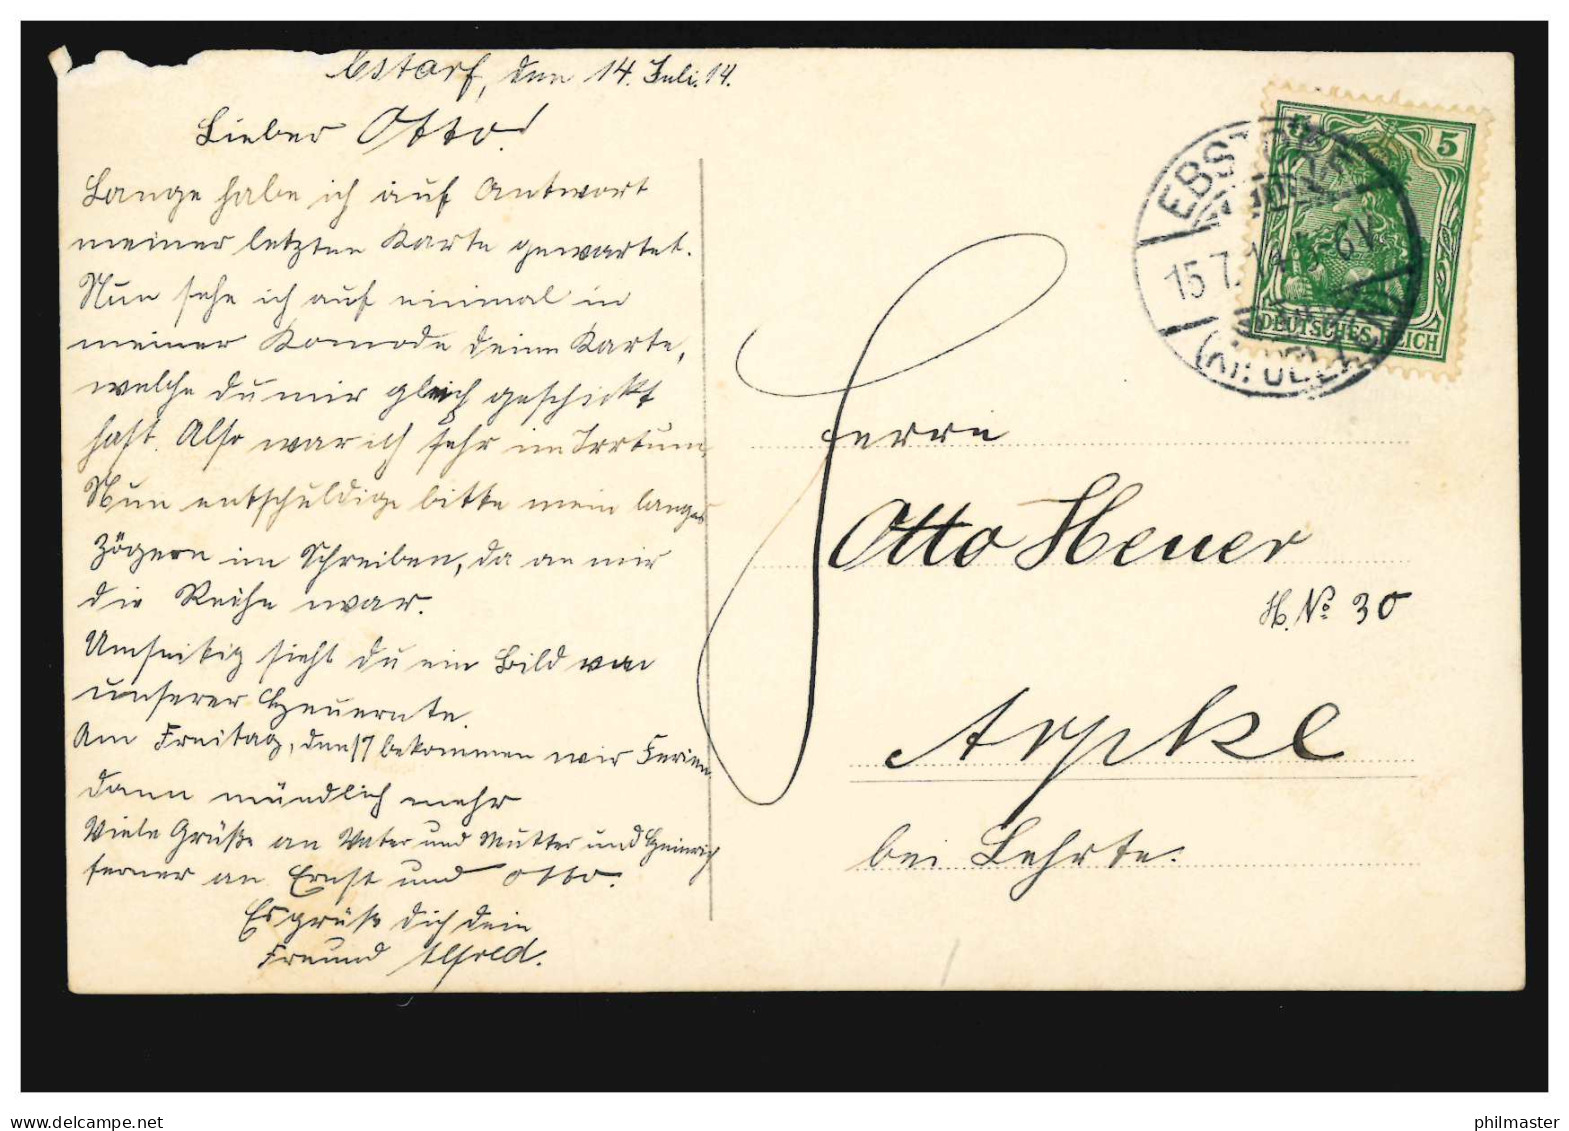 Estorf, den 14. Juli. 14.
Lieber Otto!
Lange habe ich auf Antwort
meiner letzten Karte gewartet.
Nun sehe ich auf einmal in
meiner Komode deine Karte,
welche du mir gleich geschickt
hast. Also war ich sehr im Irrtum.
Nun entschuldige bitte mein langes
Zögern im Schreiben, da an mir
die Reihe war.
Umseitig sieht du ein Bild von
unserer Heuernte.
Am Freitag, den 17 bekommen wir Ferien
dann mündlich mehr
Viele Grüße an Vater und Mutter und Heinrich
ferner an Ernst und Otto.
Es grüßt dich dein
Freund Alfred.
5
DEUTSCHES REICH
EBSTORF
15.7.14
Herrn
Otto Heuer
H. No 30
Arpke
bei Lehrte.
delcampe.net
philmaster